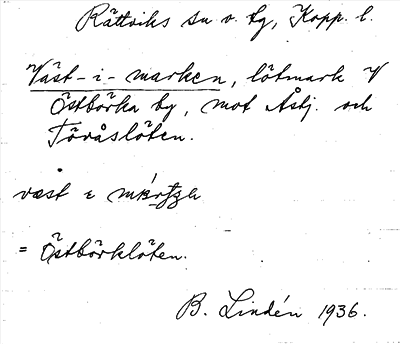 Rättviks sn o. tg, Kopp. l.
Väst-i-marken, lötmark V
Östbörka by, mot Åsbj. och
Töråslöten.
väst ɛ
= Östbörklöten.
B. Lindén 1936.